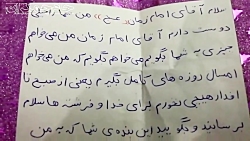 سلام آقای امام زمان «عج» من شما را خیلی
دوست دارم آقای امام زمان من می‌خواهم
چیزی به شما بگویم می‌خواهم بگویم که من می‌خواهم
امسال روزه‌های کامل بگیرم یعنی از صبح تا
افطار هیچی نخورم برای خدا و فرشته‌ها سلام
برسانید و بگویید این بنده‌ی شما که به من